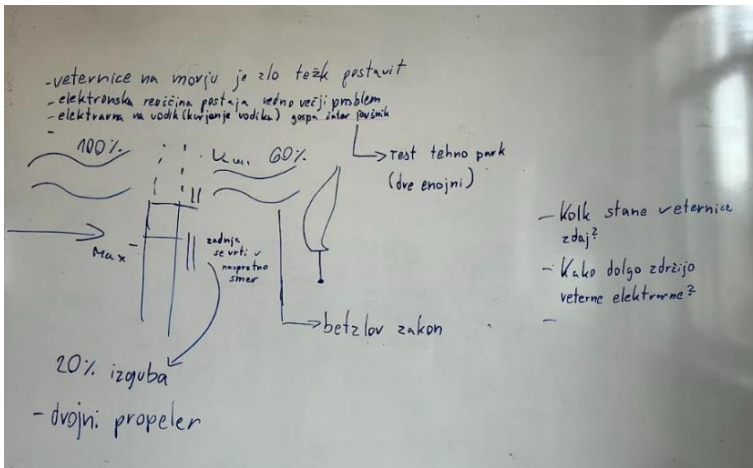 -veternice na morju je zlo težk postavit
-elektronska revščina postaja vedno večji problem
-elektrarna na vodik (kurjenje vodika) gospa
-
100%
60%
Test tehno park
(dve enojni)
Max
zadnja
se vrti v
nasprotno
smer
betzlov zakon
20% izguba
- dvojni propeler
- Kolk stane veternice
zdaj?
- Kako dolgo zdržijo
veterne elektrarne?
-